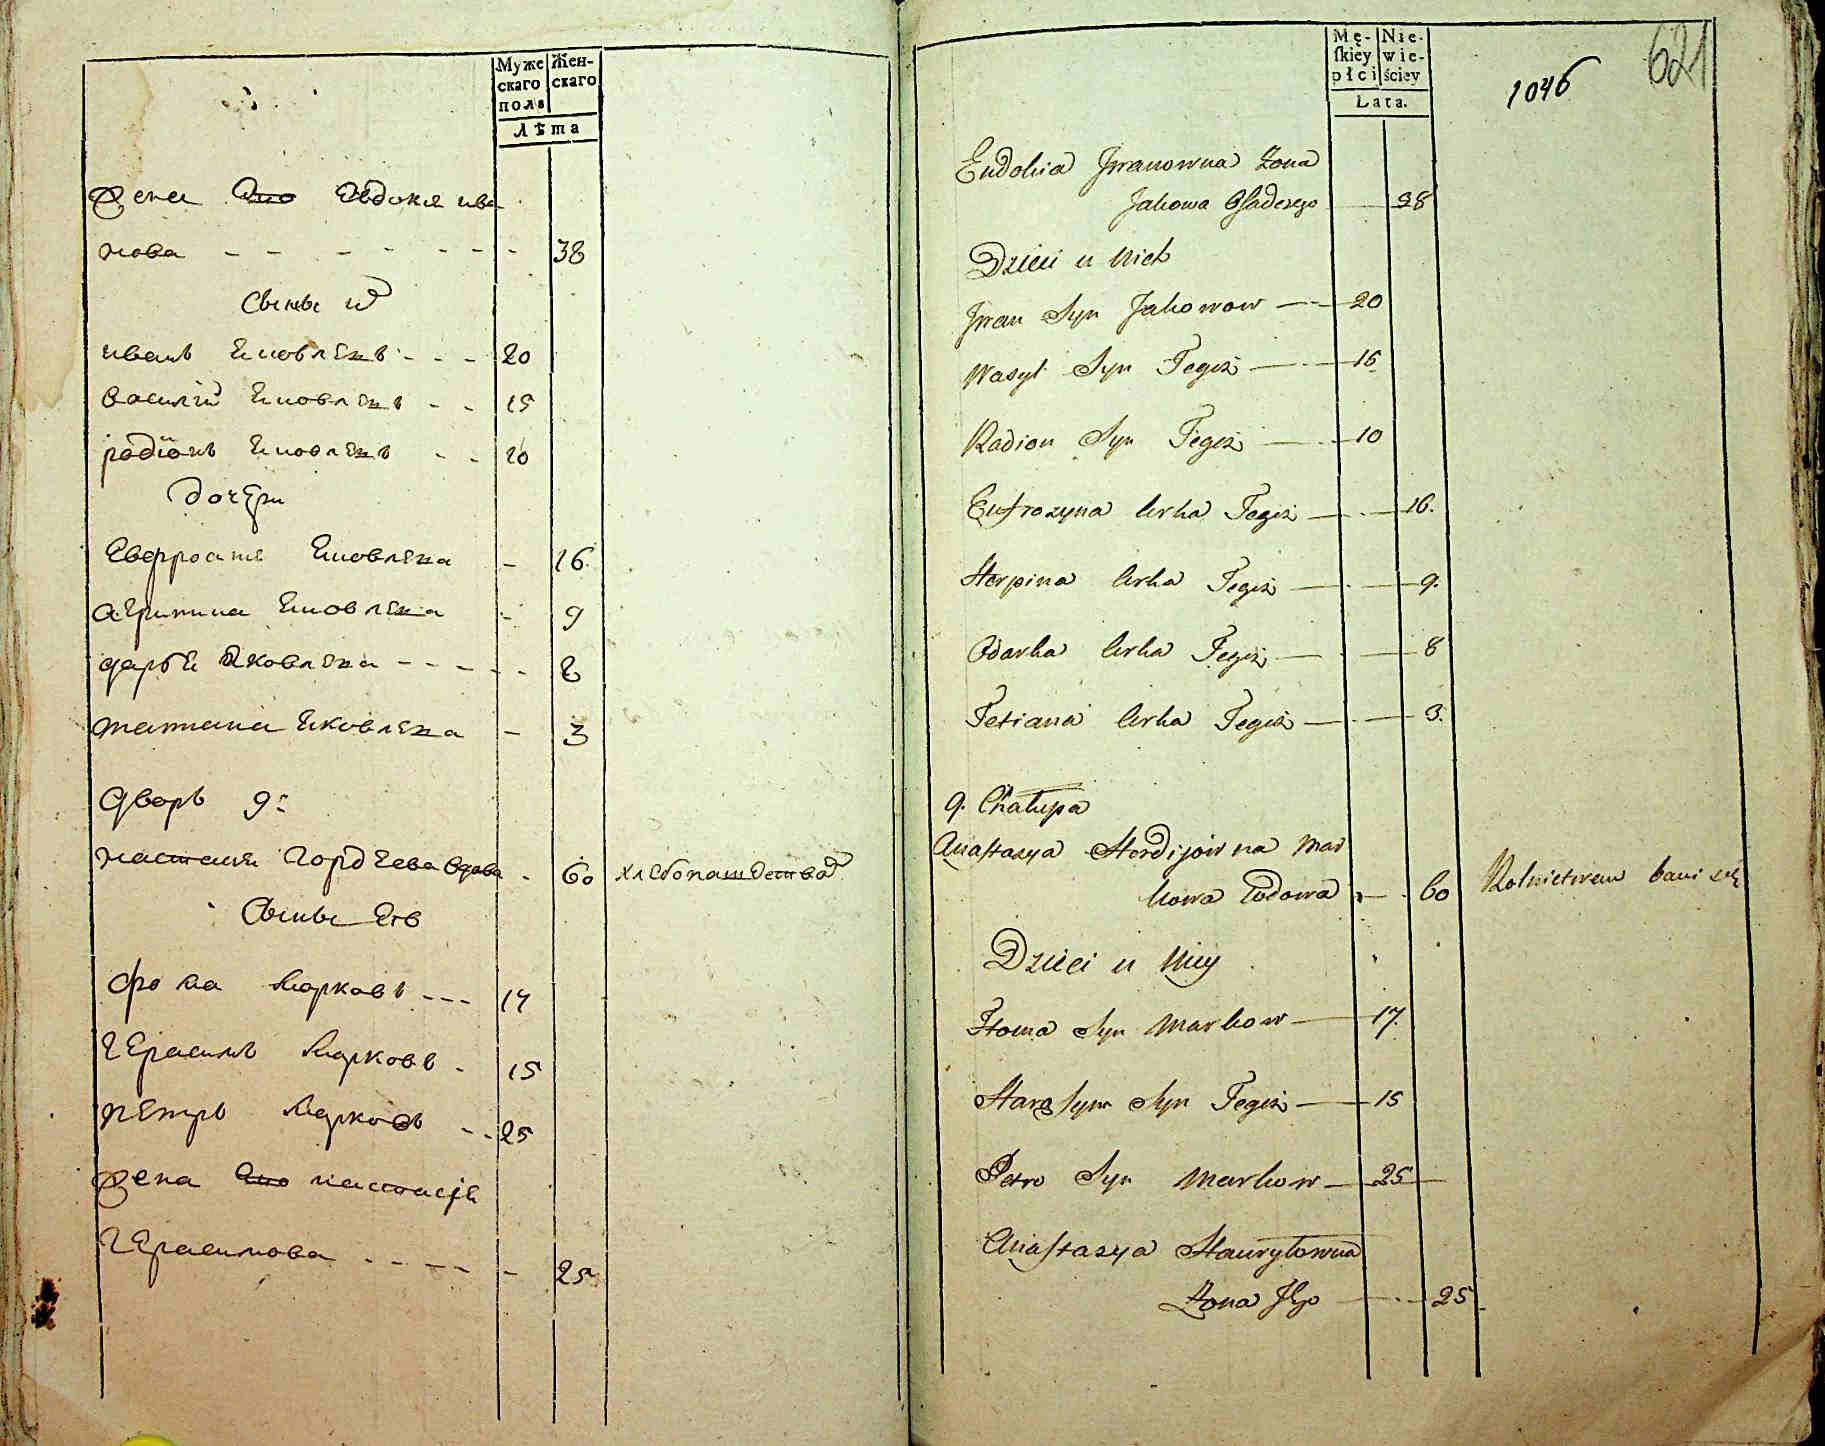 Муже
скаго
пола
Жен-
скаго
Лѣта
жена Его Евдокея ива
нова - - - - - - - 38
Сыны их
иванъ Яковлевъ - - - 20
василий Яковлевъ - - 15
родионъ Яковлевъ - - 10
дочери
Яковлева - 16
Яковлева - 9
дарья Яковлева - - - - - 8
татиана Яковлева - 3
Дворъ 9:
настасия Гордеева вдова - 60 хлебопашествам
Сыны Ея
Фома Марковъ - - - 17
Герасимъ Марковъ - 15
Петръ Марковъ - - 25
жена Его настасия
Герасимова - - - - - 25
Mę-
skiey
płci
Nie-
wie-
ściey
Lata.
1046
621
Eudokia Jwanowna Żona
Jakowa Osadczego 38
Dzieci u Nich
Jwan Syn Jakowow 20
Wasyl Syn Tegoż 15
Radion Syn Tegoż 10
Eufrozyna Curka Tegoż 16.
Horpina Curka Tegoż 9.
Odarka Curka Tegoż 8
Tetiana Curka Tegoż 3.
9. Chałupa
Anastazya Hordijowna Mar
kowa Wdowa 60 Rolnictwem bawi się
Dzieci u Niey
Homa Syn Markow 17.
Harasym Syn Tegoż 15
Petro Syn Markow 25
Anastazya Hauryłowna
Żona Jego 25